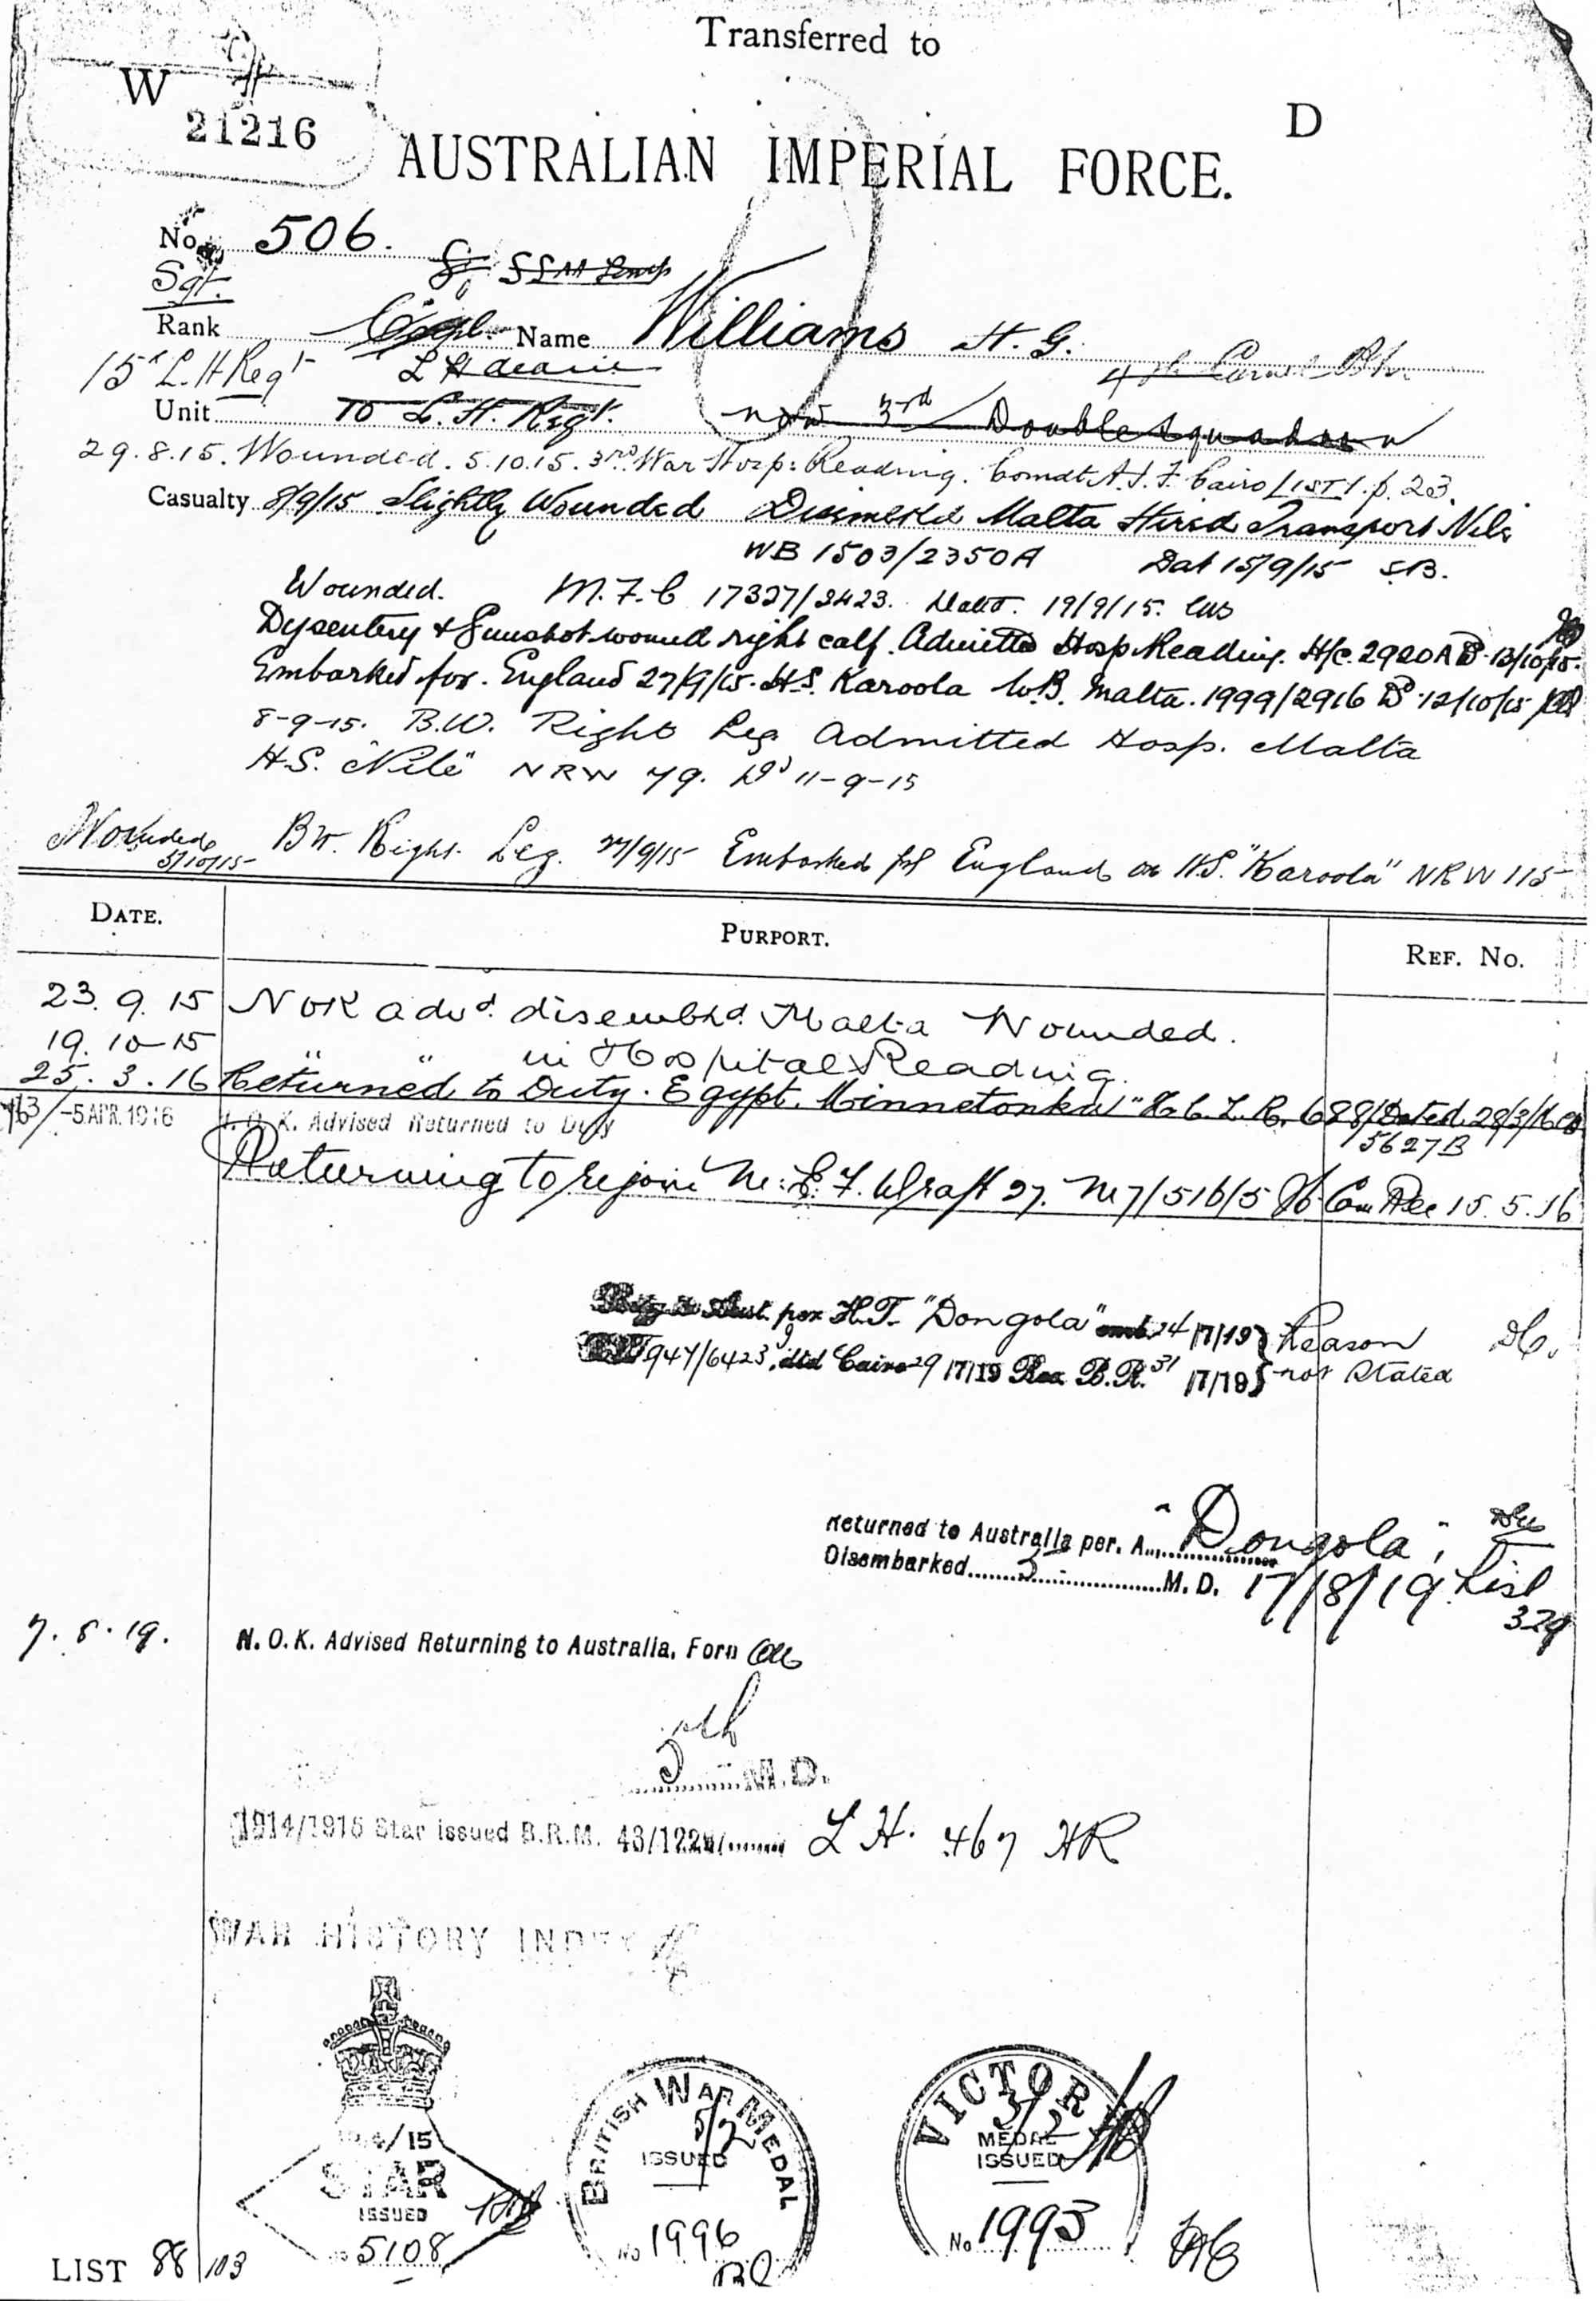 Transferred to
W
D
21216
AUSTRALIAN IMPERIAL FORCE.
No. 506.
Sgt.
Rank Corpl. Name Williams H. G.
15th L. H Regt
4th Camel Btn
Unit 10 L. H. Regt. now 3rd Double Squadron
29.8.15. Wounded. 5.10.15. 3rd War Hosp: Reading. Comdt A.I.F. Cairo LIST 1. p. 23.
Casualty 8/9/15 Slightly Wounded Disembkd Malta Hired Transport Nile
WB 1503/2350A Dat 15/9/15 SB.
Wounded. M.F.C 17327/2423. Malta. 19/9/15.
Dysentery & Gunshot wound right calf. Admitted Hosp Reading. H/c. 2920A D. 13/10/15.
Embarked for. England 27/9/15. H.S. Karoola W.B. Malta. 1999/2916 D. 12/10/15
8-9-15. B.W. Right Leg Admitted Hosp. Malta
H.S. "Nile" NRW 79. Dd 11-9-15
Wounded 5/10/15 BW. Right. Leg. 27/9/15 Embarked for England on H.S. "Karoola" NRW 115
DATE.
PURPORT.
REF. No.
23. 9. 15 NOK advd. disembkd. Malta Wounded.
19. 10-15 " " in Hospital Reading.
25. 3. 16 Returned to Duty. Egypt. "Minnetonka" 688/5627B Dated 28/3/16
-5 APR. 1916 N. O. K. Advised Returned to Duty
Returning to rejoin M.E.F. Draft 27. M7/516/5 15. 5. 16
Aust. per H.T. "Dongola" emb. 24/7/19 } Reason
947/6423, dtd Cairo 29/7/19 Rec. B.R. 31/7/19 } not Stated
Returned to Australia per. A. "Dongola",
Disembarked 5 M. D. 17/8/19 List
329
7. 8. 19. N. O. K. Advised Returning to Australia, Form
5th M.D.
1914/1915 Star issued B.R.M. 43/1229/ L H. 467 HR
WAR HISTORY INDEX
1914/15
STAR
ISSUED
5108
BRITISH WAR MEDAL
5/2
ISSUED
No 1996
VICTORY
3/2
MEDAL
ISSUED
No 1993
LIST 88/103